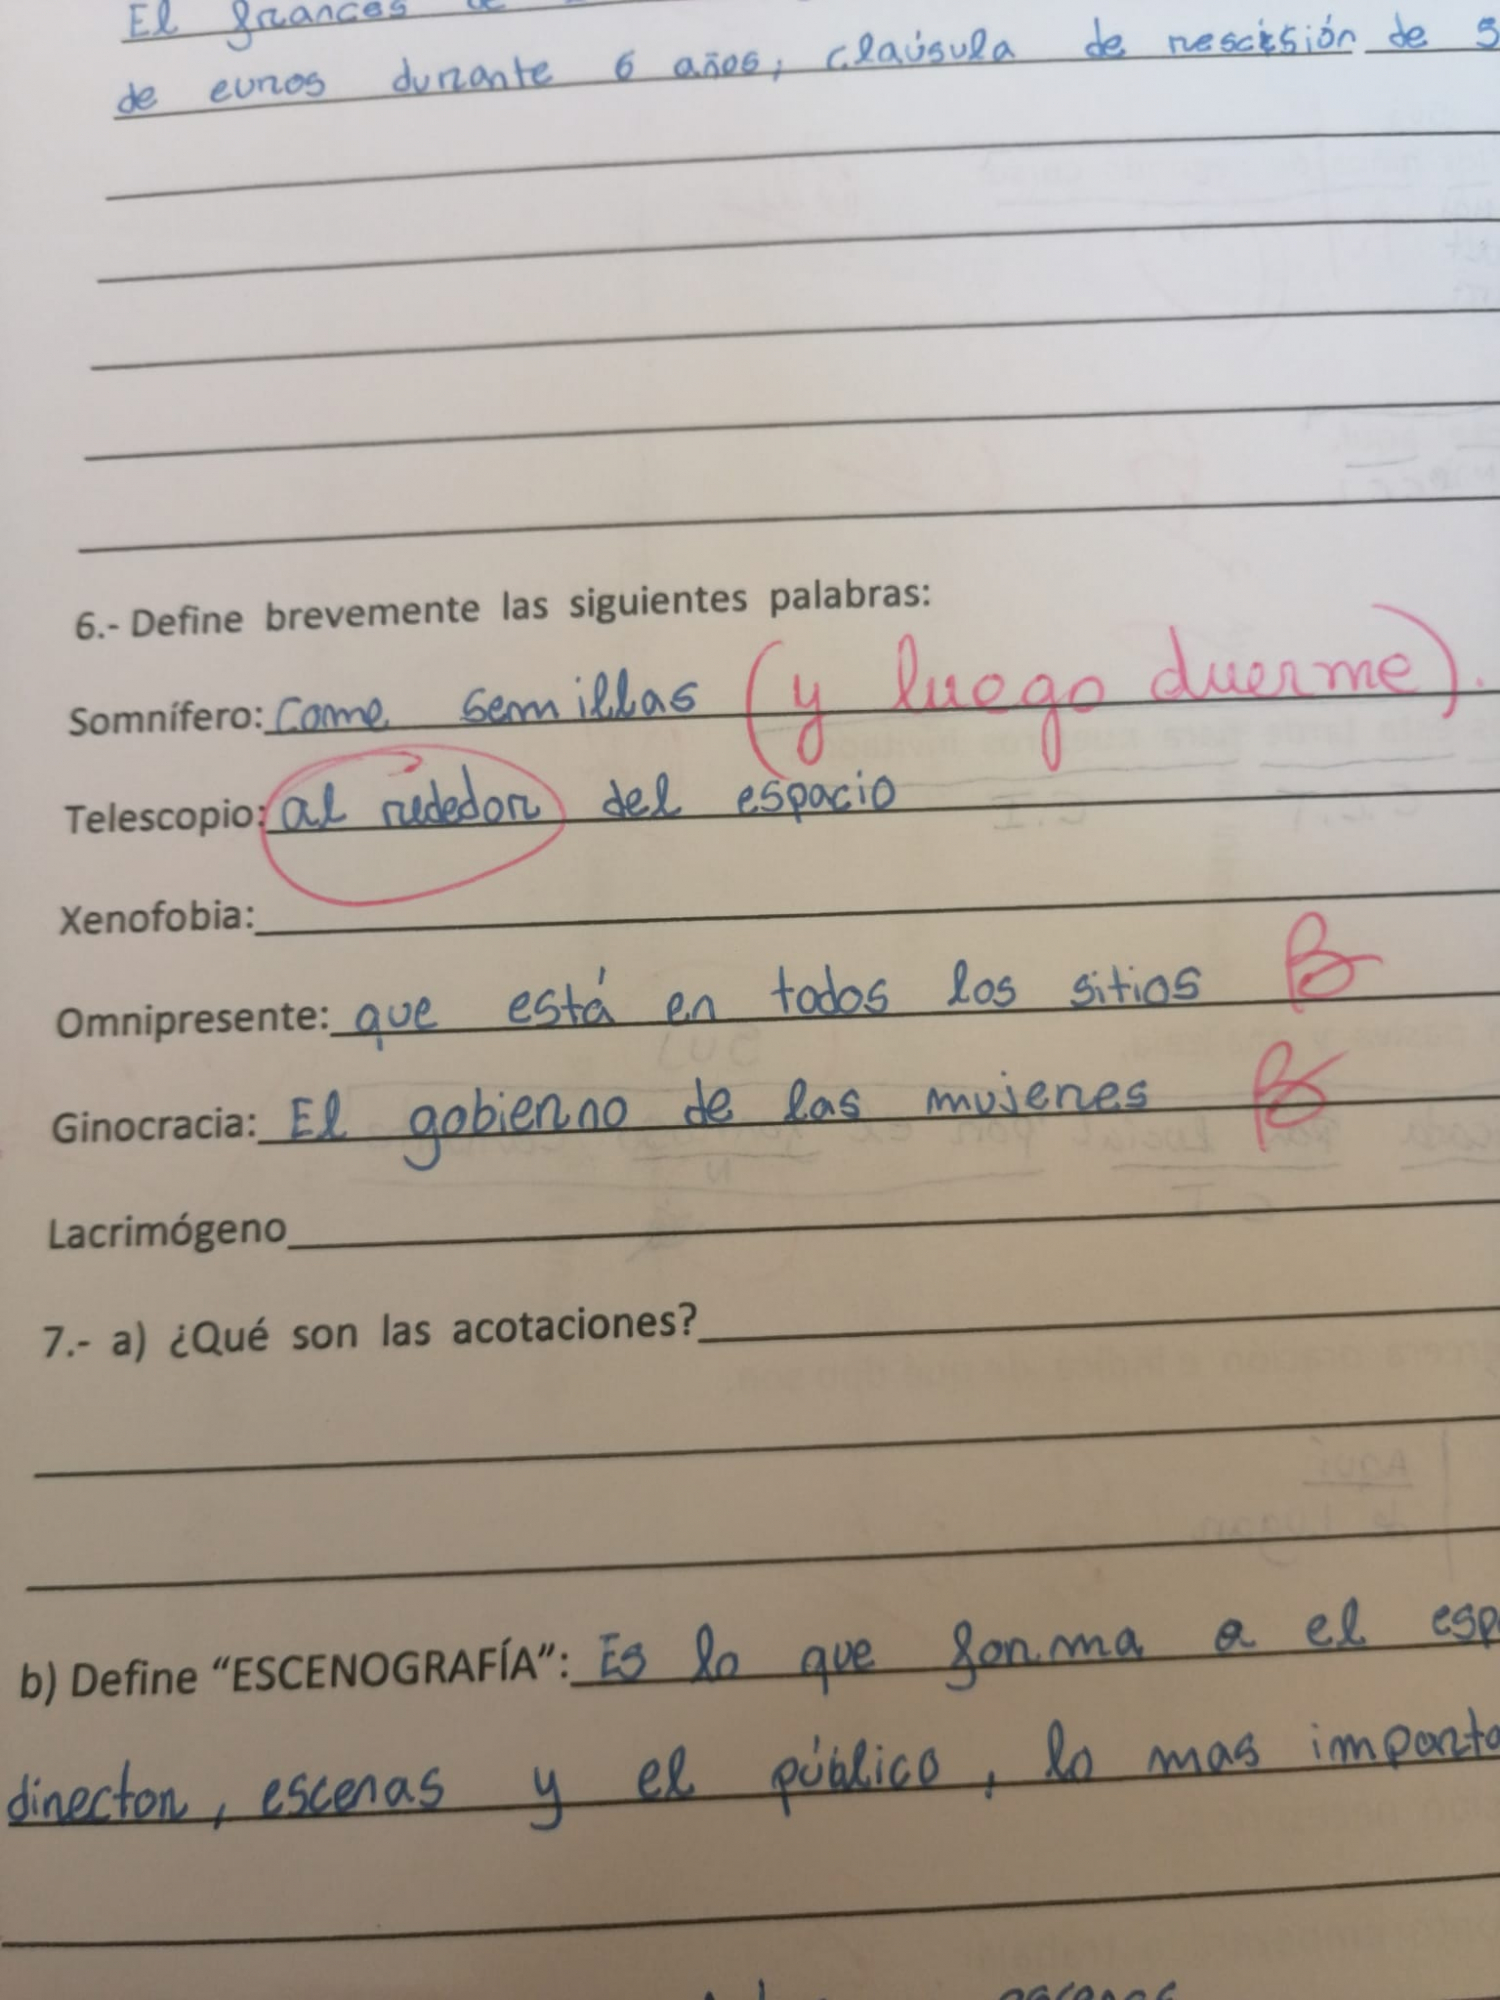 El frances de
de euros durante 6 años, claúsula de rescisión de 5
6.- Define brevemente las siguientes palabras:
Somnífero: Come semillas (y luego duerme).
Telescopio: al rededor del espacio
Xenofobia:
Omnipresente: que está en todos los sitios B
Ginocracia: El gobierno de las mujeres B
Lacrimógeno
7.- a) ¿Qué son las acotaciones?
b) Define “ESCENOGRAFÍA”: Es lo que forma a el esp
director, escenas y el público, lo mas importa